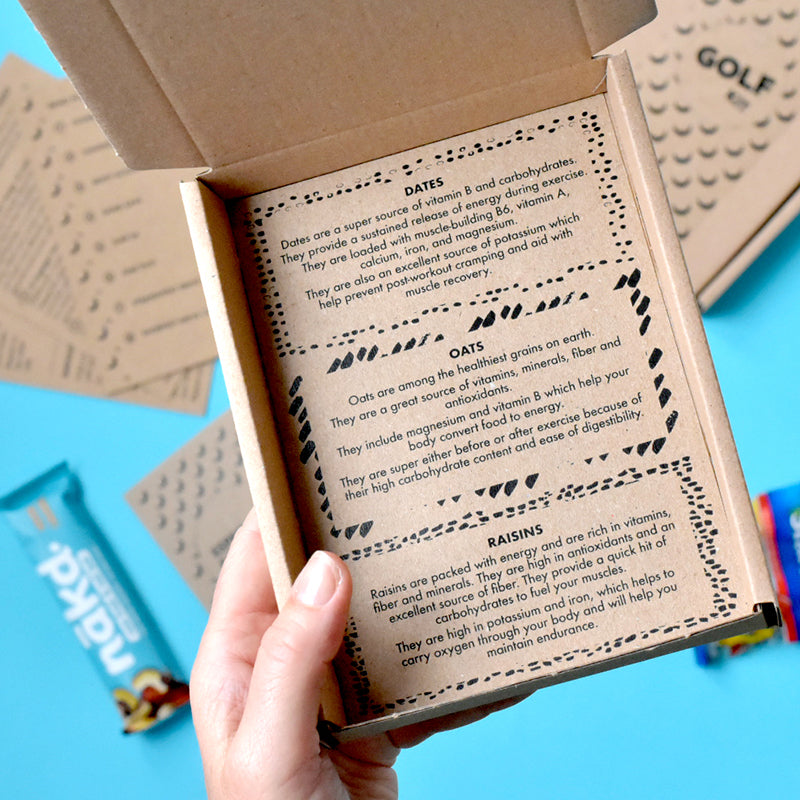 GOLF
DATES
Dates are a super source of vitamin B and carbohydrates.
They provide a sustained release of energy during exercise.
They are loaded with muscle-building B6, vitamin A,
calcium, iron, and magnesium.
They are also an excellent source of potassium which
help prevent post-workout cramping and aid with
muscle recovery.
OATS
Oats are among the healthiest grains on earth.
They are a great source of vitamins, minerals, fiber and
antioxidants.
They include magnesium and vitamin B which help your
body convert food to energy.
They are super either before or after exercise because of
their high carbohydrate content and ease of digestibility.
RAISINS
Raisins are packed with energy and are rich in vitamins,
fiber and minerals. They are high in antioxidants and an
excellent source of fiber. They provide a quick hit of
carbohydrates to fuel your muscles.
They are high in potassium and iron, which helps to
carry oxygen through your body and will help you
maintain endurance.
nakd.